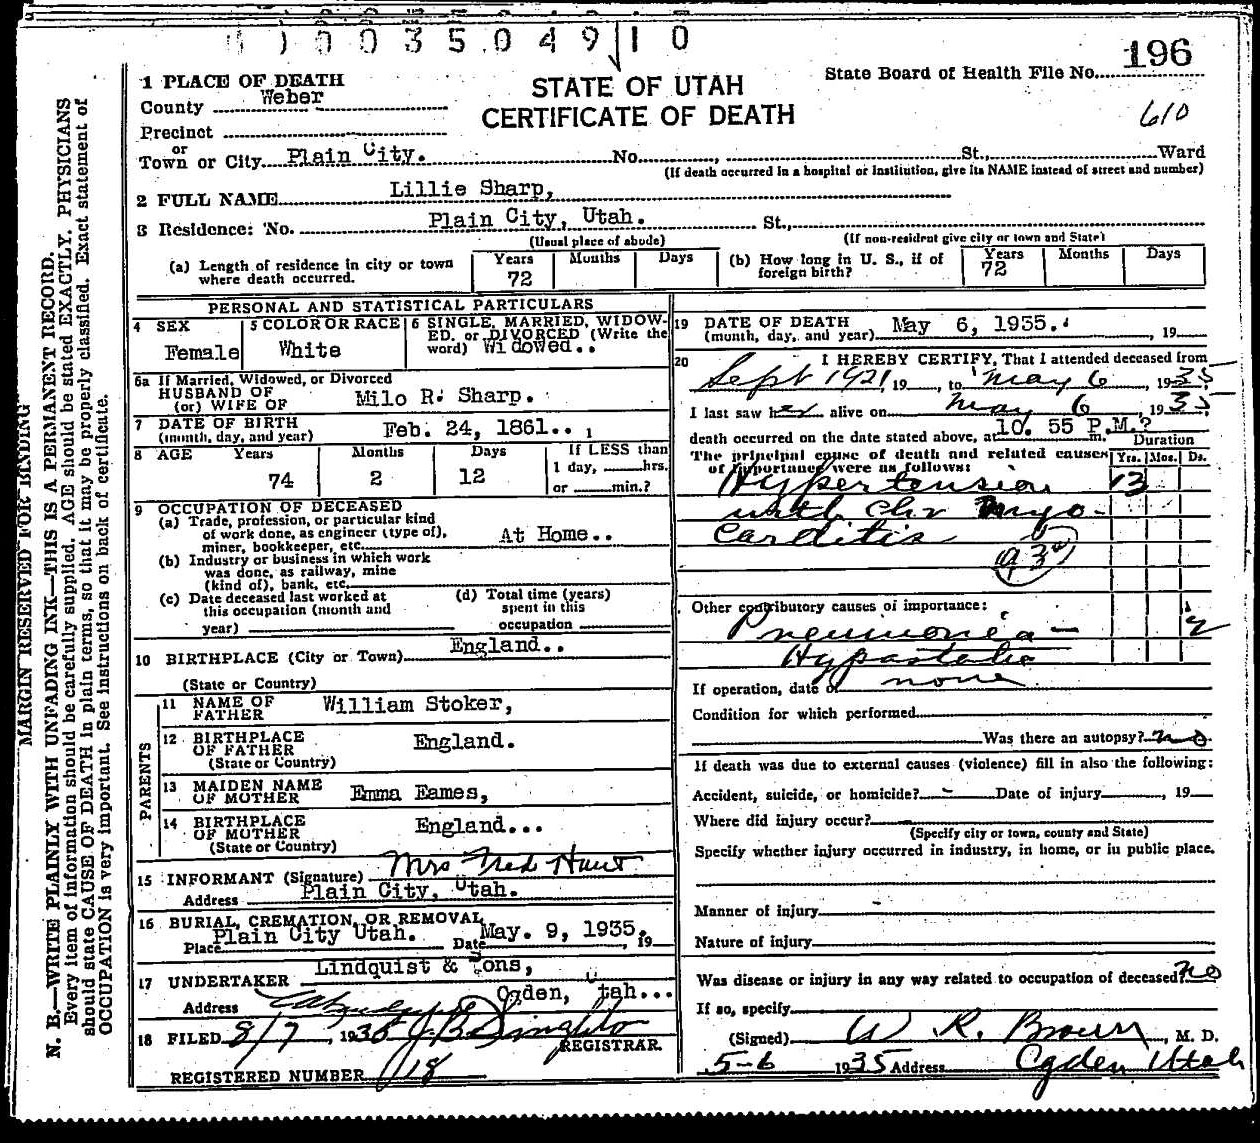 1 0 0 3 5 0 4 9 1 0
196
State Board of Health File No.
610
STATE OF UTAH
CERTIFICATE OF DEATH
1 PLACE OF DEATH
County Weber
Precinct
or
Town or City Plain City. No. , St., Ward
(If death occurred in a hospital or institution, give its NAME instead of street and number)
2 FULL NAME Lillie Sharp,
3 Residence: No. Plain City, Utah. St.,
(Usual place of abode) (If non-resident give city or town and State)
(a) Length of residence in city or town where death occurred. Years 72 Months Days
(b) How long in U. S., if of foreign birth? Years 72 Months Days
PERSONAL AND STATISTICAL PARTICULARS
4 SEX Female
5 COLOR OR RACE White
6 SINGLE, MARRIED, WIDOW-
ED. or DIVORCED (Write the
word) Widowed..
6a If Married, Widowed, or Divorced
HUSBAND OF
(or) WIFE OF Milo R. Sharp.
7 DATE OF BIRTH
(month, day, and year) Feb. 24, 1861..
8 AGE Years 74 Months 2 Days 12 If LESS than
1 day, hrs.
or min.?
9 OCCUPATION OF DECEASED
(a) Trade, profession, or particular kind
of work done, as engineer (type of),
miner, bookkeeper, etc. At Home..
(b) Industry or business in which work
was done, as railway, mine
(kind of), bank, etc.
(c) Date deceased last worked at
this occupation (month and
year)
(d) Total time (years)
spent in this
occupation
10 BIRTHPLACE (City or Town) England..
(State or Country)
PARENTS
11 NAME OF
FATHER William Stoker,
12 BIRTHPLACE
OF FATHER England.
(State or Country)
13 MAIDEN NAME
OF MOTHER Emma Eames,
14 BIRTHPLACE
OF MOTHER England...
(State or Country)
15 INFORMANT (Signature) Mrs Fred Hunt
Address Plain City, Utah.
16 BURIAL, CREMATION, OR REMOVAL
Place Plain City Utah. Date May. 9, 1935. , 19
17 UNDERTAKER Lindquist & Sons,
Address Ogden, Utah...
18 FILED 8/7, 1935 J. B. Singleto
REGISTRAR.
REGISTERED NUMBER 18
19 DATE OF DEATH
(month, day, and year) May 6, 1935. , 19
20 I HEREBY CERTIFY, That I attended deceased from
Sept 1921 19 , to May 6 , 1935
I last saw her alive on May 6 , 1935
death occurred on the date stated above, at 10. 55 P.M.? m.
The principal cause of death and related causes
of importance were as follows:
Duration
Yrs. Mos. Ds.
Hypertension 13
with Chr Myo-
carditis
93
Other contributory causes of importance:
Pneumonia — 2
Hypostatic
If operation, date of none
Condition for which performed
Was there an autopsy? no
If death was due to external causes (violence) fill in also the following:
Accident, suicide, or homicide? - Date of injury , 19
Where did injury occur?
(Specify city or town, county and State)
Specify whether injury occurred in industry, in home, or in public place.
Manner of injury
Nature of injury
Was disease or injury in any way related to occupation of deceased? no
If so, specify
(Signed) W R. Brown, M. D.
5-6 1935 Address Ogden Utah
MARGIN RESERVED FOR BINDING
N. B.—WRITE PLAINLY WITH UNFADING INK—THIS IS A PERMANENT RECORD.
Every item of information should be carefully supplied. AGE should be stated EXACTLY. PHYSICIANS
should state CAUSE OF DEATH in plain terms, so that it may be properly classified. Exact statement of
OCCUPATION is very important. See instructions on back of certificate.